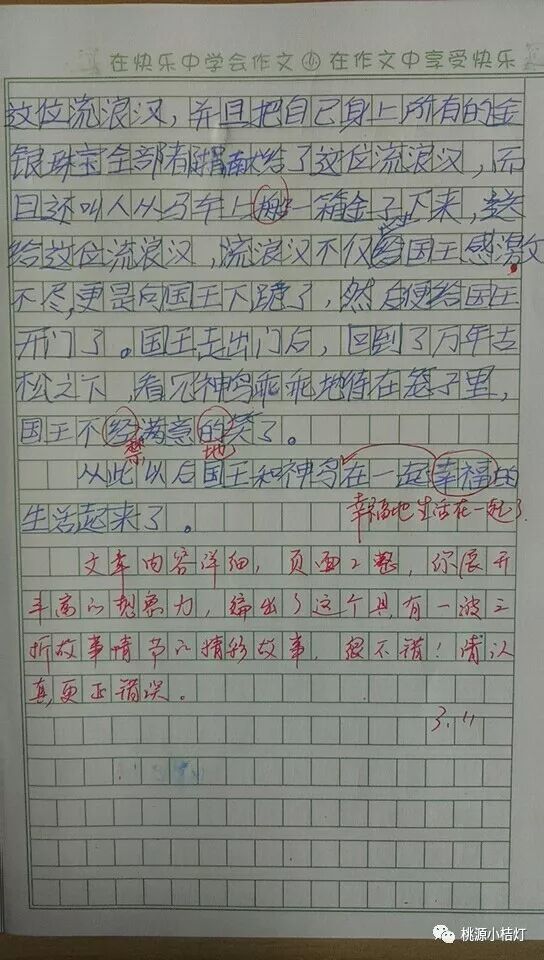 在快乐中学会作文 在作文中享受快乐
这位流浪汉，并且把自己身上所有的金
银珠宝全部都捐献给了这位流浪汉，而
且还叫人从马车上搬一箱金子下来，送
给这位流浪汉，流浪汉不仅给国王感激
不尽，更是向国王下跪了，然后便给国王
开门了。国王走出门后，回到了万年古
松之下，看见神鸟乖乖地待在笼子里，
国王不经满意的笑了。
禁 地
从此以后国王和神鸟在一起幸福的
生活起来了。
幸福地生活在一起了
文章内容详细，页面工整，你展开
丰富的想象力，编出了这个具有一波三
折故事情节的精彩故事，很不错！请认
真更正错误。
3.11
桃源小桔灯